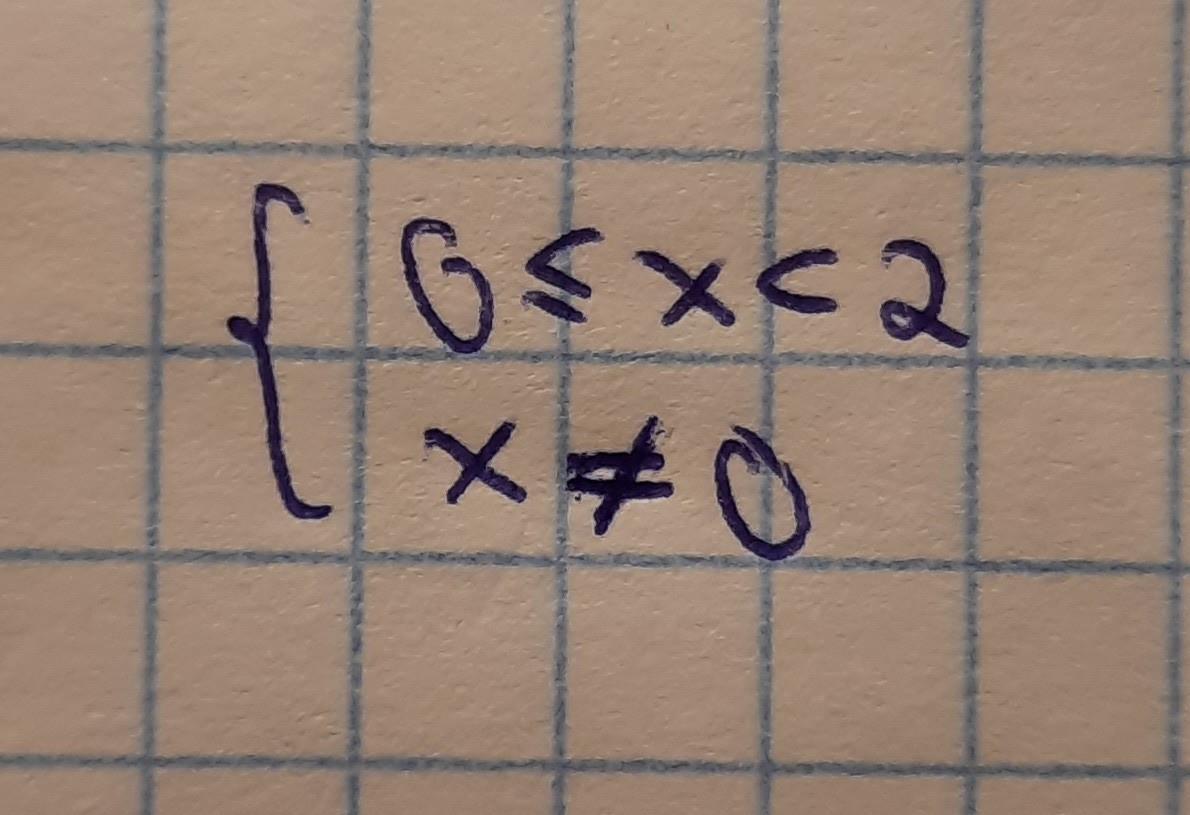 0 ≤ x < 2
x ≠ 0